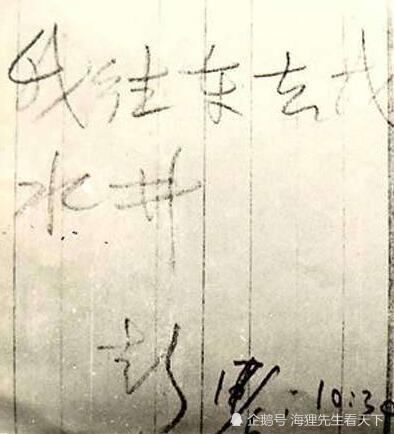 我往东去找
水井
彭 10:30
企鹅号 海狸先生看天下